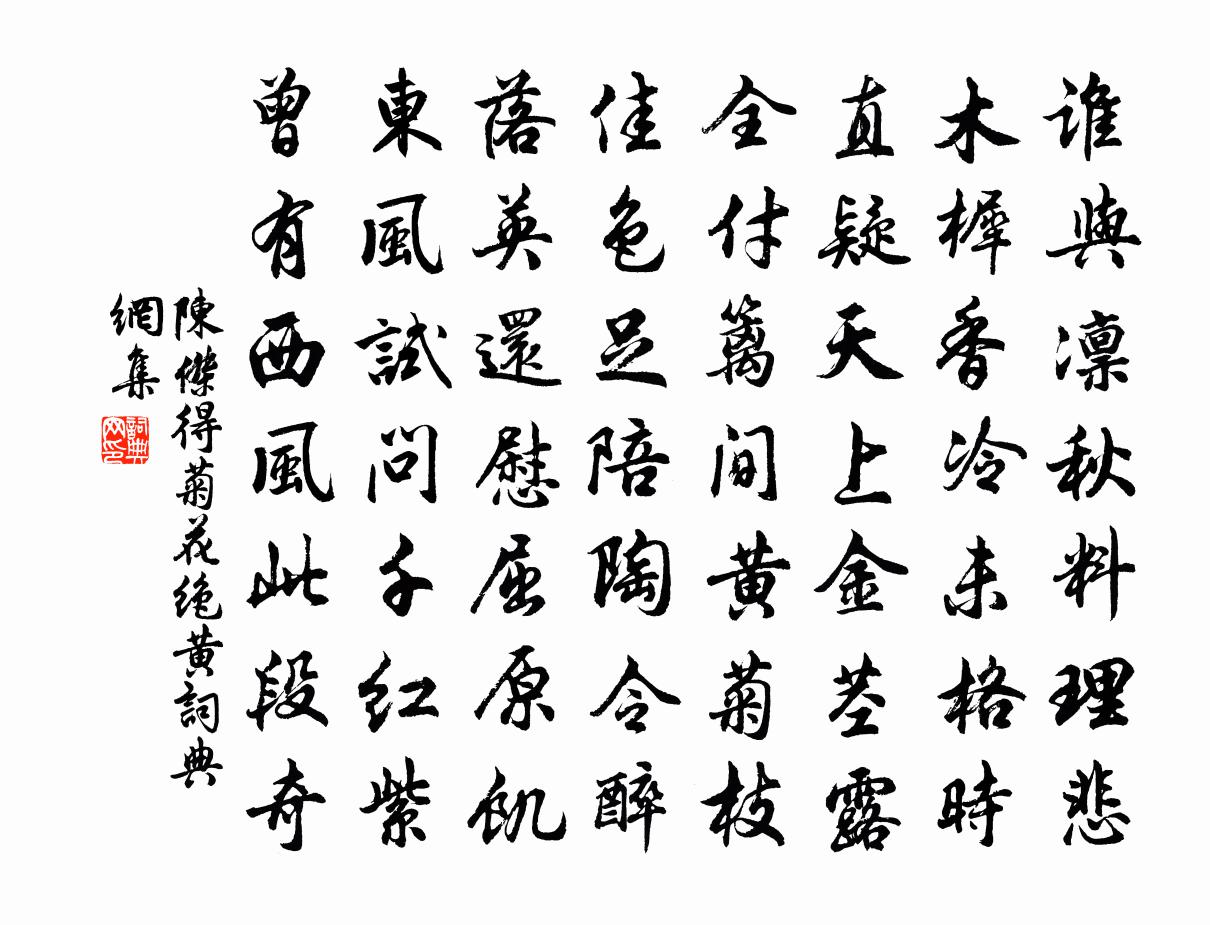 誰與凛秋料理悲
木樨香冷未格時
直疑天上金莖露
全付籬間黄菊枝
佳色足陪陶令醉
落英還慰屈原飢
東風試問千紅紫
曾有西風此段奇
陳傑得菊花絶黄詞典
網集
詞典
网印